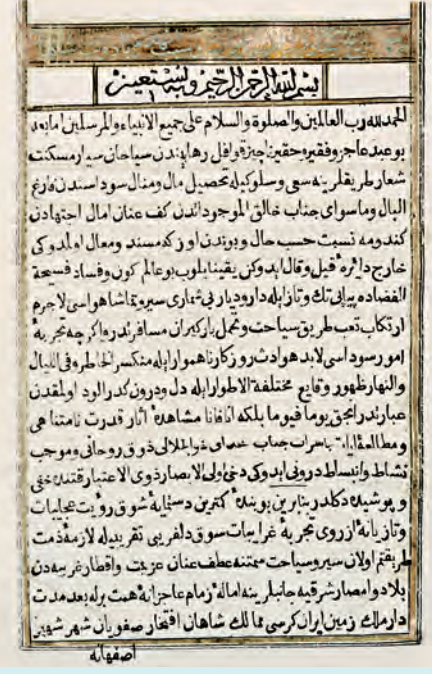 بسم الله الرحمن الرحيم وبه نستعين
الحمد لله رب العالمين والصلوة والسلام على جميع الانبياء والمرسلين اما بعد
بو عبد عاجز وفقير وحقير ناچيز قوافل رهايندن سياحان سيار مسكنت
شعار طريقلرينه سعى وسلوكيله تحصيل مال ومنال سوداسندن فارغ
البال وما سواى جناب خالق الموجوداتدن كف عنان امال اجتهادن
كندومه نسبت حسب حال وبوندن اوزكه مسند ومعال اولمدوكى
خارج دائره قيل وقال ايدوكن يقينا بلوب بو عالم كون وفساد فسيحة
الفضاده پياپى تك وتاز ايله دارو ديار بى شمارى سير وتماشا هواسى لاجرم
ارتكاب تعب طريق سياحت وتحمل باركيران مسافرتدر واكرچه تجربه
امور سوداسى لابد هوادث روزكار ناهموار ايله منكسر الخاطر وفى الليال
والنهار ظهور وقايع مختلفة الاطوار ايله دل ودرون كدر الود اولمقدن
عبارتدر انجق يوما فيوما بلكه انا فانا مشاهده اثار قدرت نامتناهى
ومطالعه جناب ذوق روحانى وموجب
نشاط وانبساط درونى ايدوكى دخى اولى الابصار ذوى الاعتبار قتنده خفى
و پوشيده دكلدر بنابرين بوبنده كمترين دستمايه شوق رؤيت عجايبات
وتازيانه ارزوى تجربه غرايبات سوق دلفريبى تقريبيله لازمه ذمت
طريقتم اولان سير وسياحت سمتنه عطف عنان عزيمت واقطار غريبه دن
بلاد وامصار شرقيه جانبلرينه اماله زمام عاجزانه همت برله بعد مدت
دار ملك زمين ايران كرسى ممالك شاهان افتخار صفويان شهر شهير
اصفهانه